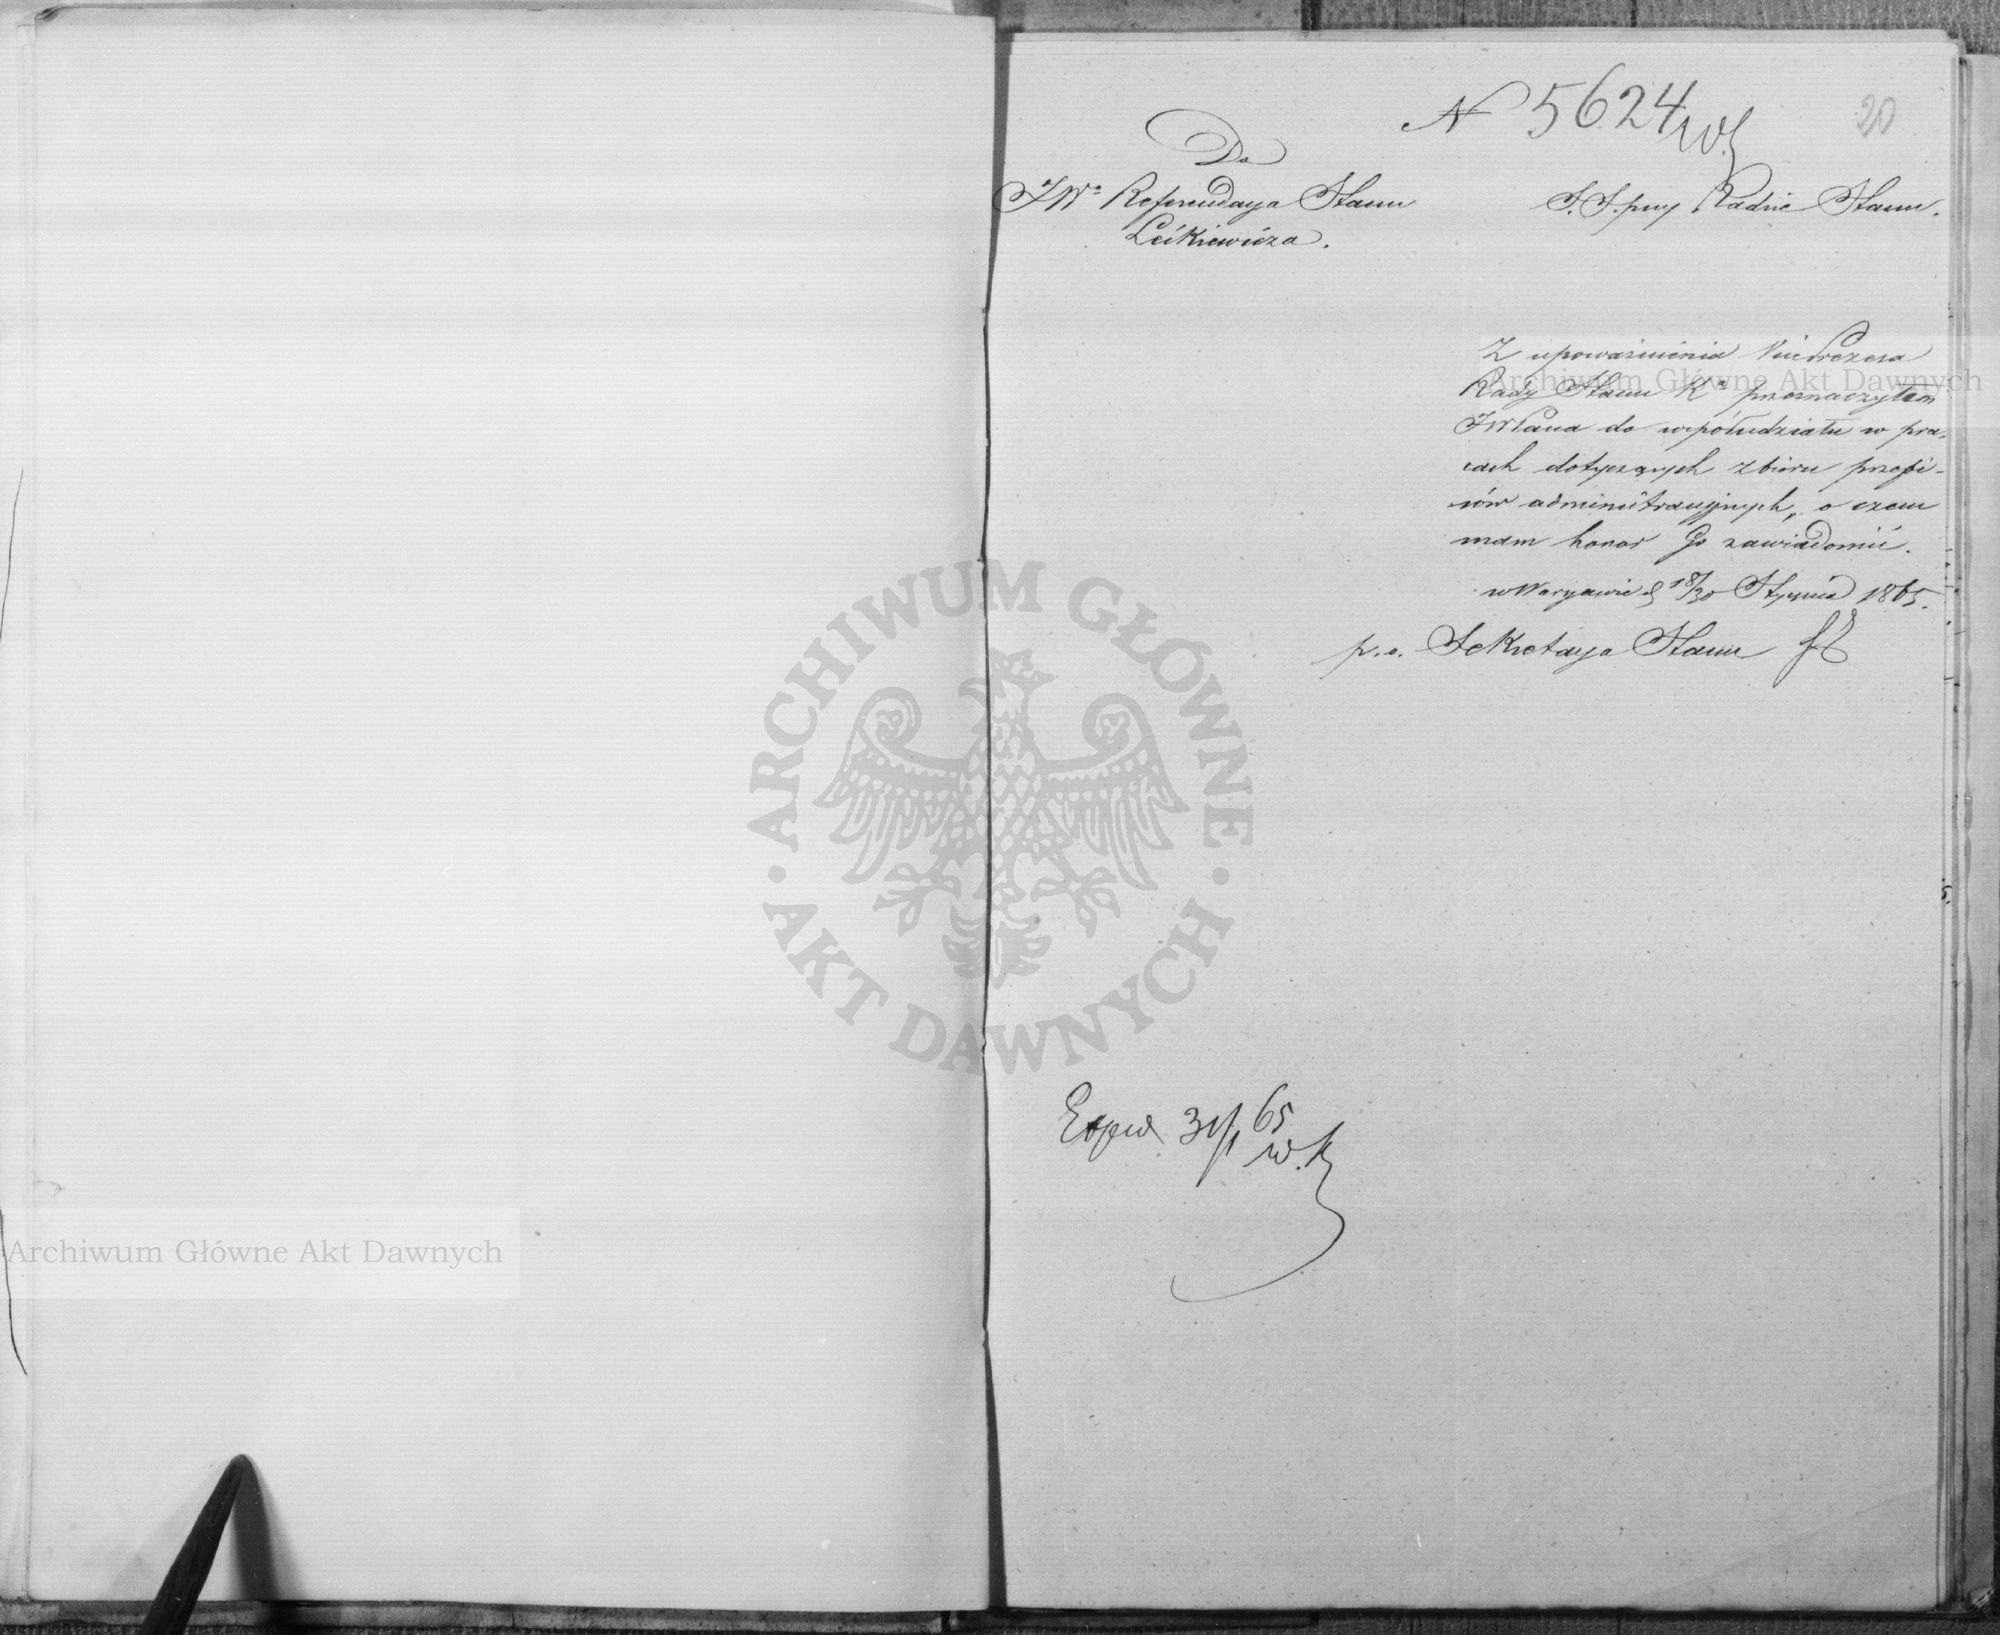 N 5624
20
Do
JWo Referendarza Stanu
S.S. przy Radzie Stanu.
Z upoważnienia Vice Prezesa
Rady Stanu Ka przeznaczyłem
JWPana do współudziału w pra-
cach dotyczących zbioru przepi-
sów administracyjnych, o czem
mam honor Go zawiadomić.
w Warszawie d 18/30 Stycznia 1865.
p.o. Sekretarza Stanu
Exped 31/1 65
w.k
Archiwum Główne Akt Dawnych
ARCHIWUM GŁÓWNE AKT DAWNYCH
Archiwum Główne Akt Dawnych